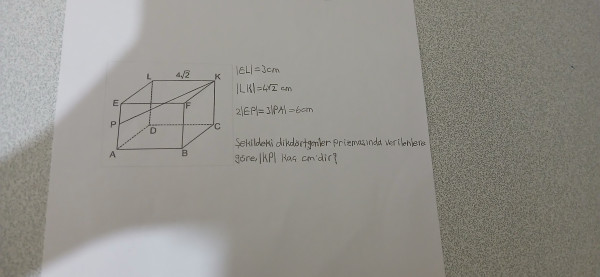 L 4√2 K
E F
P
D C
A B
|EL|=3cm
|LK|=4√2 cm
2|EP|=3|PA|=6cm
Şekildeki dikdörtgenler prizmasında verilenlere
göre, |KP| kaç cm'dir?